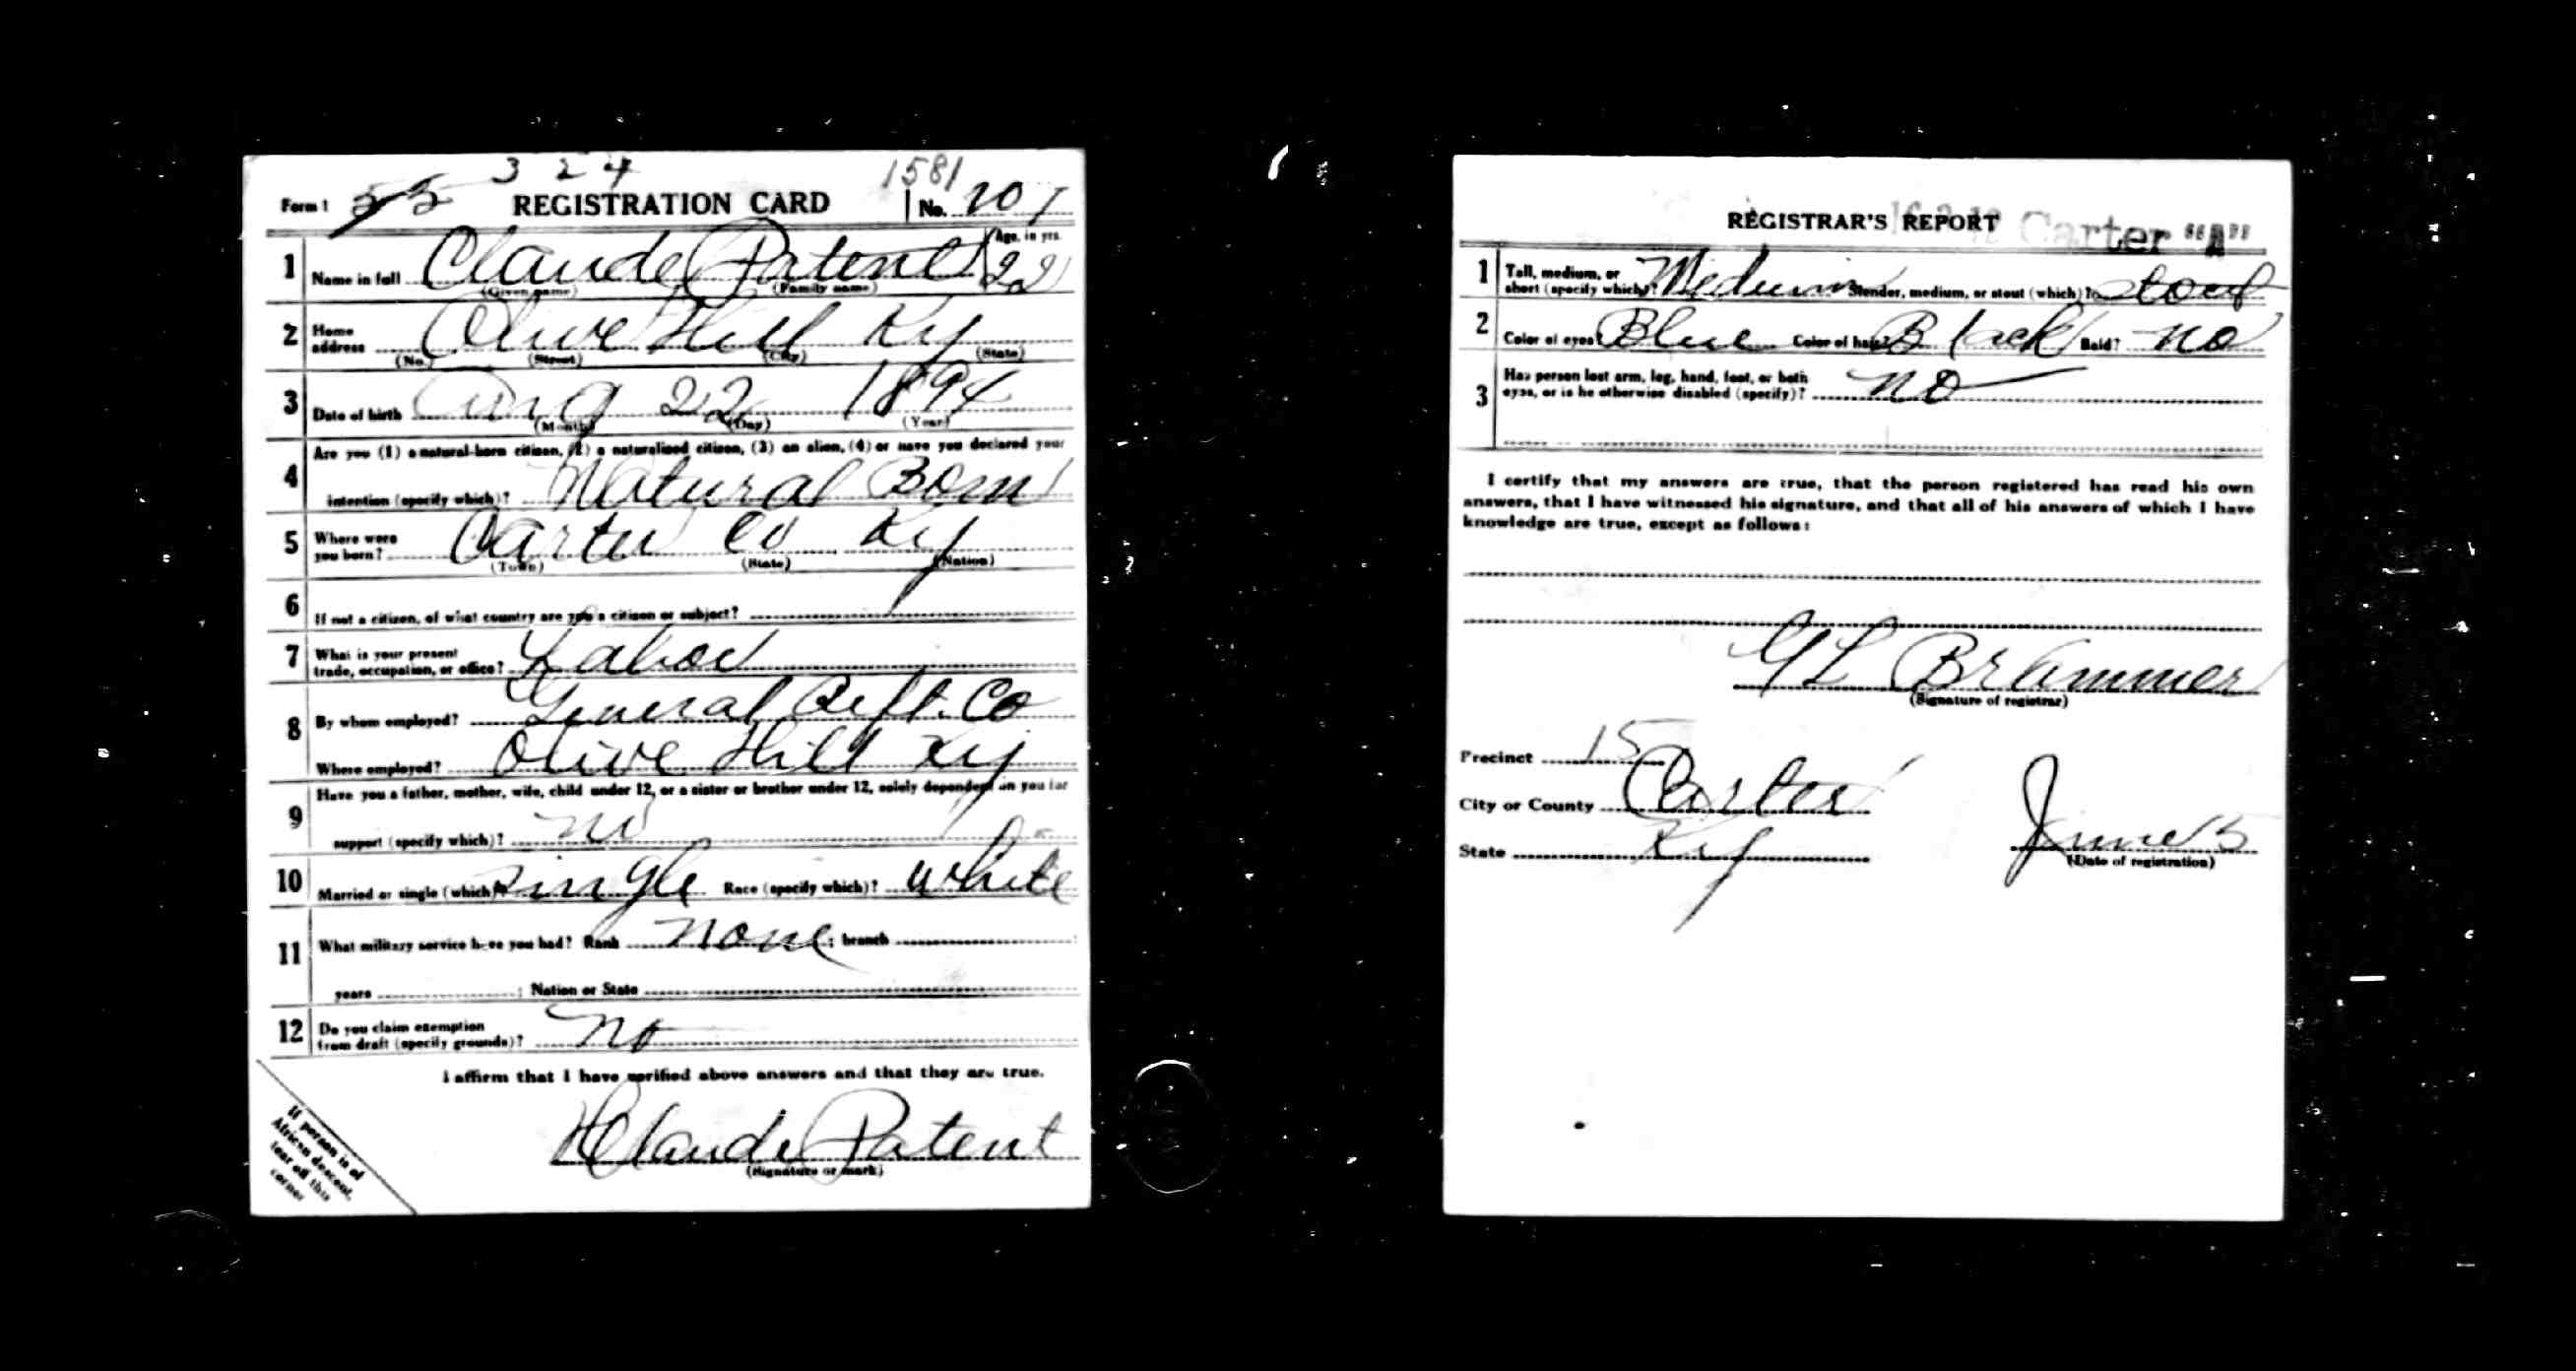 3 2 4
1581
Form 1 55 REGISTRATION CARD No. 101
1 Name in full Claude Patent Age, in yrs. 22
(Given name) (Family name)
2 Home address Olive Hill Ky
(No.) (Street) (City) (State)
3 Date of birth Aug 22 1894
(Month) (Day) (Year)
Are you (1) a natural-born citizen, (2) a naturalized citizen, (3) an alien, (4) or have you declared your
4 intention (specify which)? Natural Born
5 Where were you born? Carter Co Ky
(Town) (State) (Nation)
6 If not a citizen, of what country are you a citizen or subject?
7 What is your present trade, occupation, or office? Labor
8 By whom employed? General Reft. Co
Where employed? Olive Hill Ky
9 Have you a father, mother, wife, child under 12, or a sister or brother under 12, solely dependent on you for
support (specify which)? no
10 Married or single (which)? Single Race (specify which)? White
11 What military service have you had? Rank none; branch
years ; Nation or State
12 Do you claim exemption from draft (specify grounds)? No
I affirm that I have verified above answers and that they are true.
Claude Patent
(Signature or mark)
If person is of
African descent,
tear off this
corner
REGISTRAR'S REPORT Carter "A"
1 Tall, medium, or short (specify which)? Medium Slender, medium, or stout (which)? Stout
2 Color of eyes? Blue Color of hair? Black Bald? no
3 Has person lost arm, leg, hand, foot, or both
eyes, or is he otherwise disabled (specify)? no
I certify that my answers are true, that the person registered has read his own
answers, that I have witnessed his signature, and that all of his answers of which I have
knowledge are true, except as follows:
G L Brammer
(Signature of registrar)
Precinct 15
City or County Carter
State Ky June 5
(Date of registration)